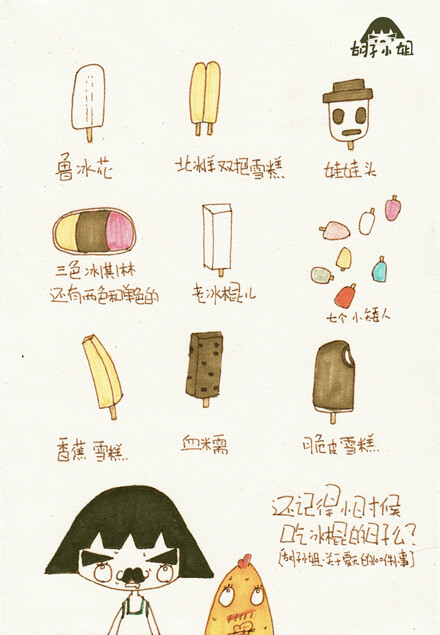 胡子小姐
鲁冰花
北冰洋双把雪糕
娃娃头
三色冰淇淋
还有两色和单色的
老冰棍儿
七个小矮人
香蕉雪糕
血米糯
脆皮雪糕
还记得小时候
吃冰棍的日子么?
[胡子小姐·关于夏天的100件事]